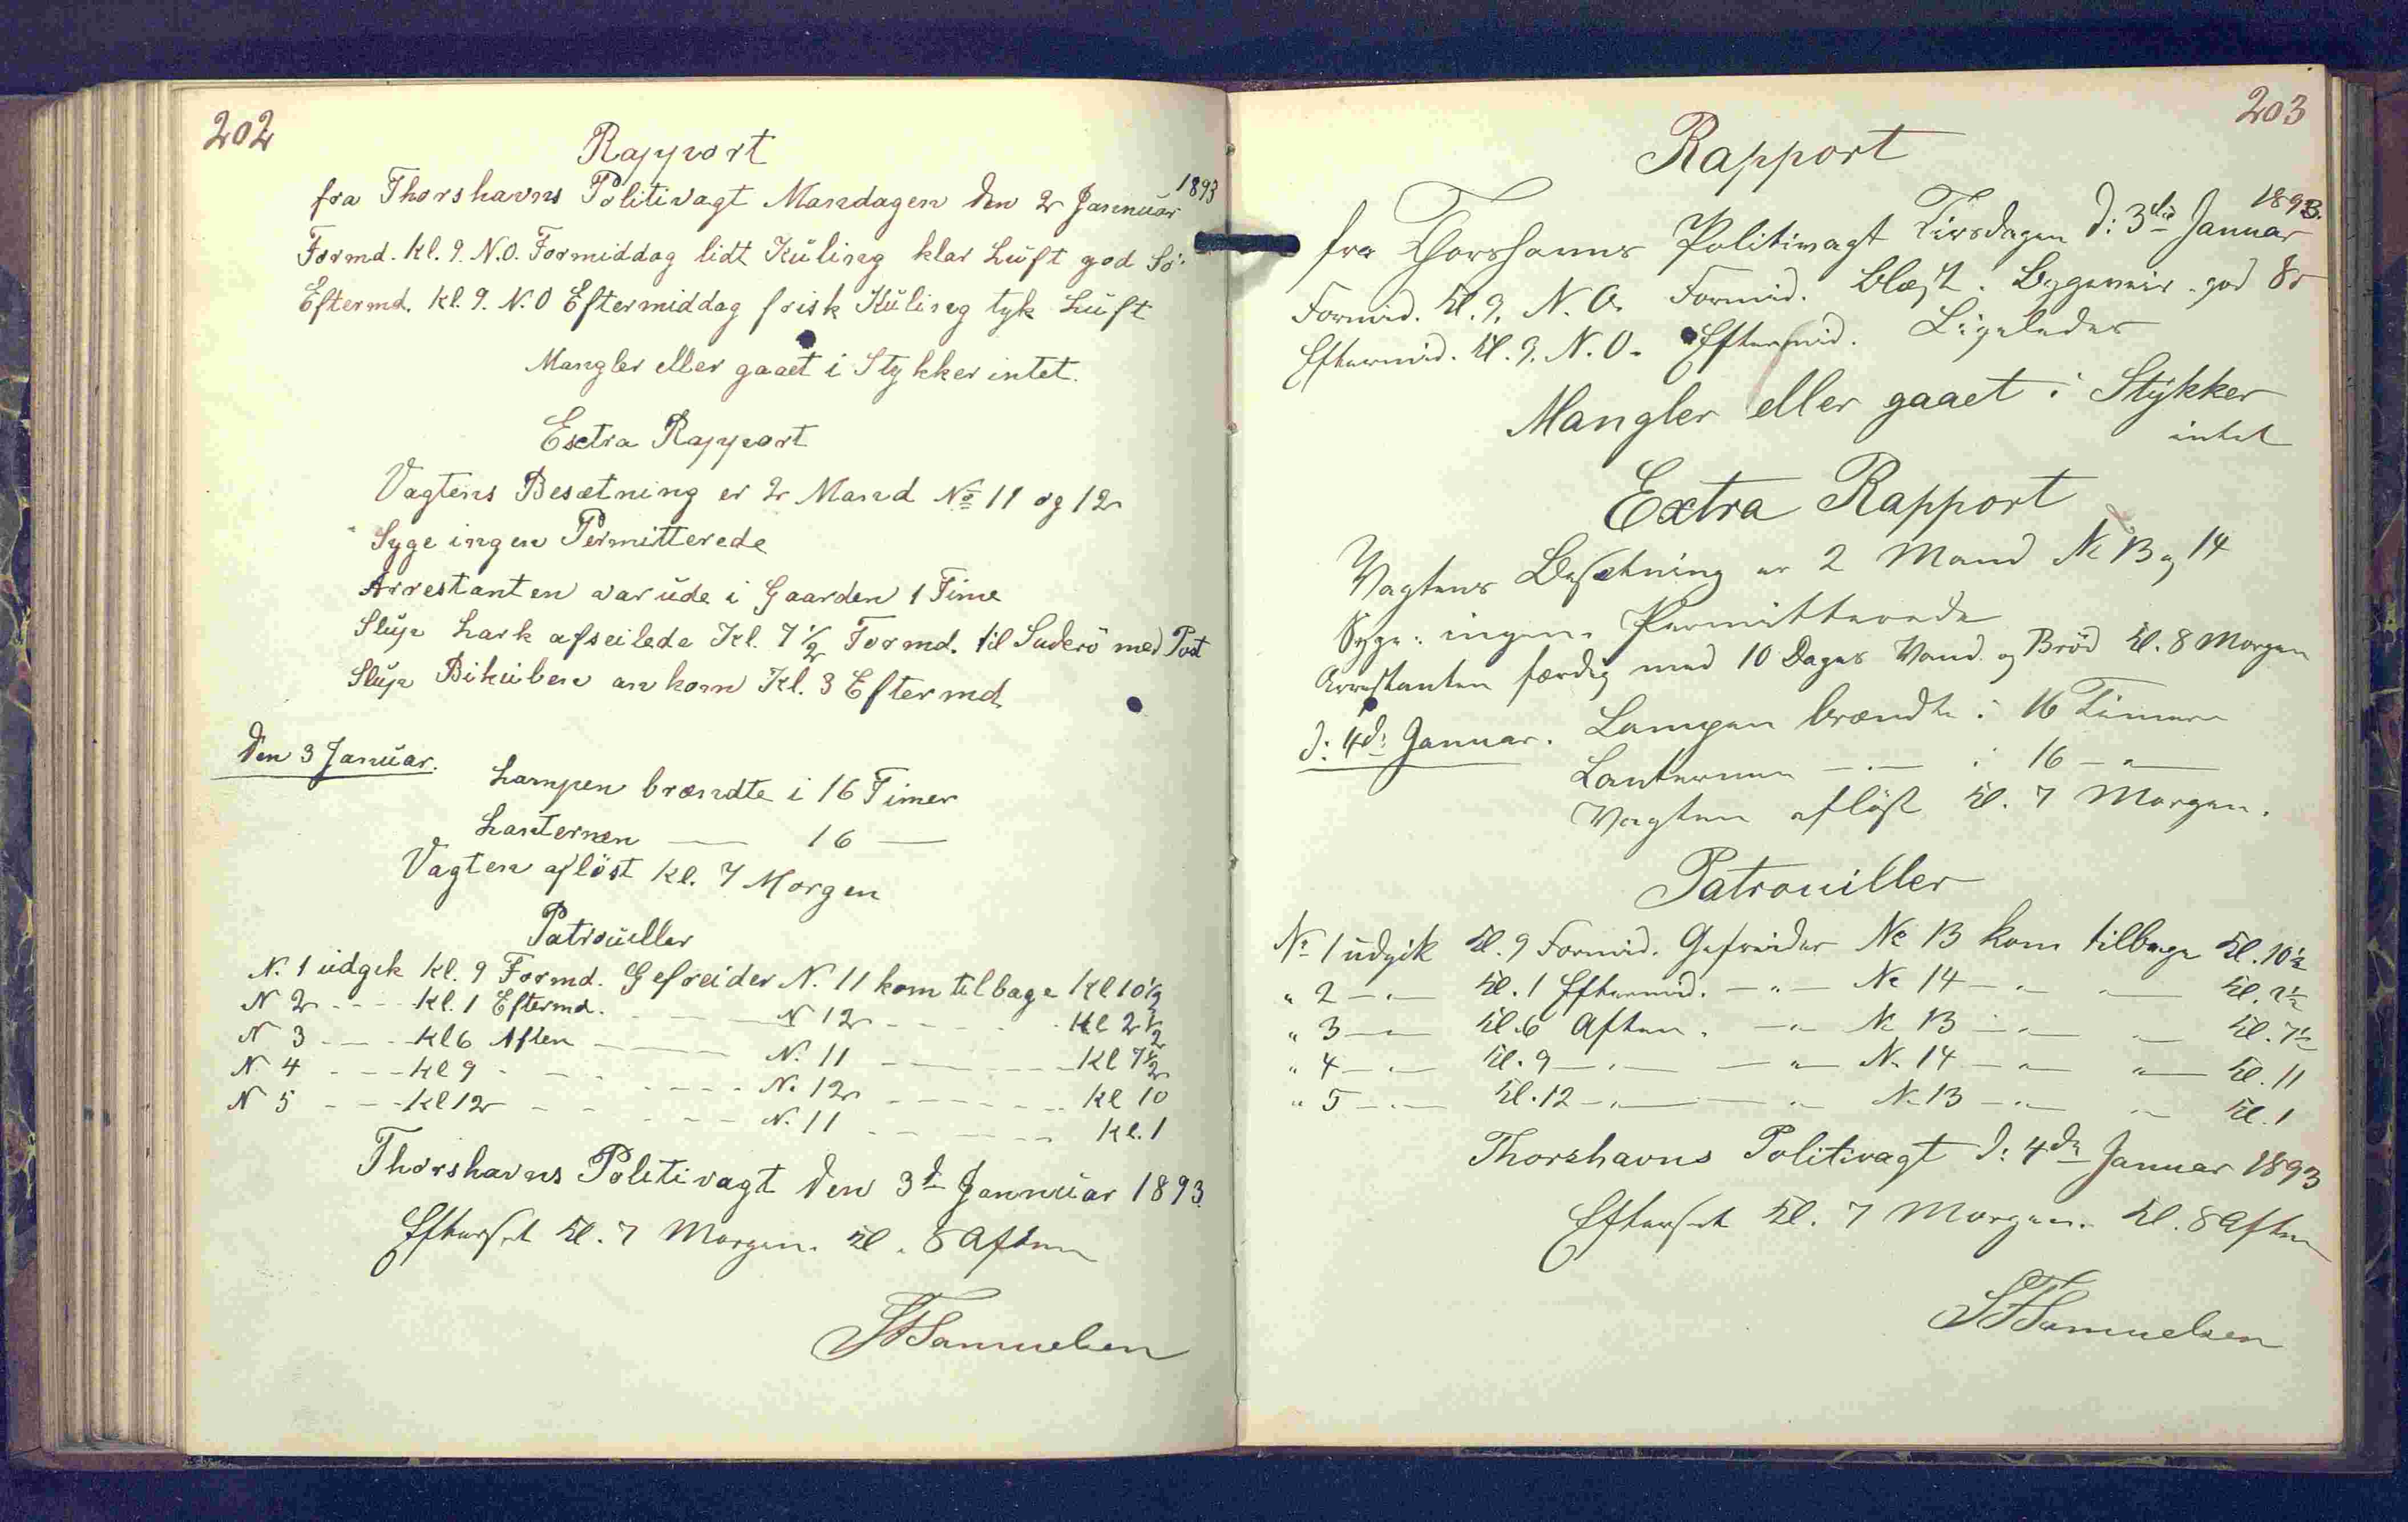 202
Rapport
fra Thorshavns Politivagt Mandagen den 2 Januar 1893
Formd. Kl. 9. N.O. Formiddag lidt Kuling klar Luft god Sö.
Eftermd. Kl. 9. N.O Eftermiddag frisk Kuling tyk Luft
Mangler eller gaaet i Stykker intet.
Extra Rapport
Vagtens Besætning er 2 Mand No 11 og 12
Syge ingen Permitterede
Arrestanten var ude i Gaarden 1 Time
Slup Lark afseilede Kl. 7 1/2 Formd. til Suderö med Post
Slup Bikuben ankom Kl. 3 Eftermd
Den 3 Januar. Lampen brændte i 16 Timer
Lanternen — 16 —
Vagten aflöst Kl. 7 Morgen
Patrouller
N. 1 udgik Kl. 9 Formd. Gefreider N. 11 kom tilbage Kl 10 1/2
N 2 - - - Kl. 1 Eftermd. - - - N 12 - - - Kl 2 1/2
N 3 - - - Kl 6 Aften - - - N. 11 - - - Kl 7 1/2
N. 4 - - - Kl 9 - - - N. 12 - - - Kl 10
N 5 - - - Kl 12 - - - N. 11 - - - Kl. 1
Thorshavns Politivagt den 3d Januar 1893
Efterset Kl. 7 Morgen. Kl. 8 Aften
Samuelsen
203
Rapport
fra Thorshavns Politivagt Tirsdagen d: 3die Januar 1893.
Formid. Kl. 9. N.O. Formid. Blæst. Bygeveir. god Sö
Eftermid. Kl. 9. N.O. Eftermid. Ligeledes
Mangler eller gaaet i Stykker
intet
Extra Rapport
Vagtens Besætning er 2 Mand No 13 og 14
Syge: ingen. Permitterede
Arrestanten færdig med 10 Dages Vand og Bröd Kl. 8 Morgen
d: 4de Januar. Lampen brændte i 16 Timer
Lanternen — " — i 16 — " —
Vagten aflöst Kl. 7 Morgen.
Patrouiller
No 1 udgik Kl. 9 Formid. Gefreider No 13 kom tilbage Kl. 10 1/2
" 2 — " — Kl. 1 Eftermid. — " — No 14 — " — " — Kl. 2 1/2
" 3 — " — Kl. 6 Aften. — " — No 13 — " — " — Kl. 7 1/2
" 4 — " — Kl. 9 — " — — " — No 14 — " — " — Kl. 11
" 5 — " — Kl. 12 — " — — " — No 13 — " — " — Kl. 1
Thorshavns Politivagt d: 4de Januar 1893
Efterset Kl. 7 Morgen. Kl. 8 Aften
Samuelsen